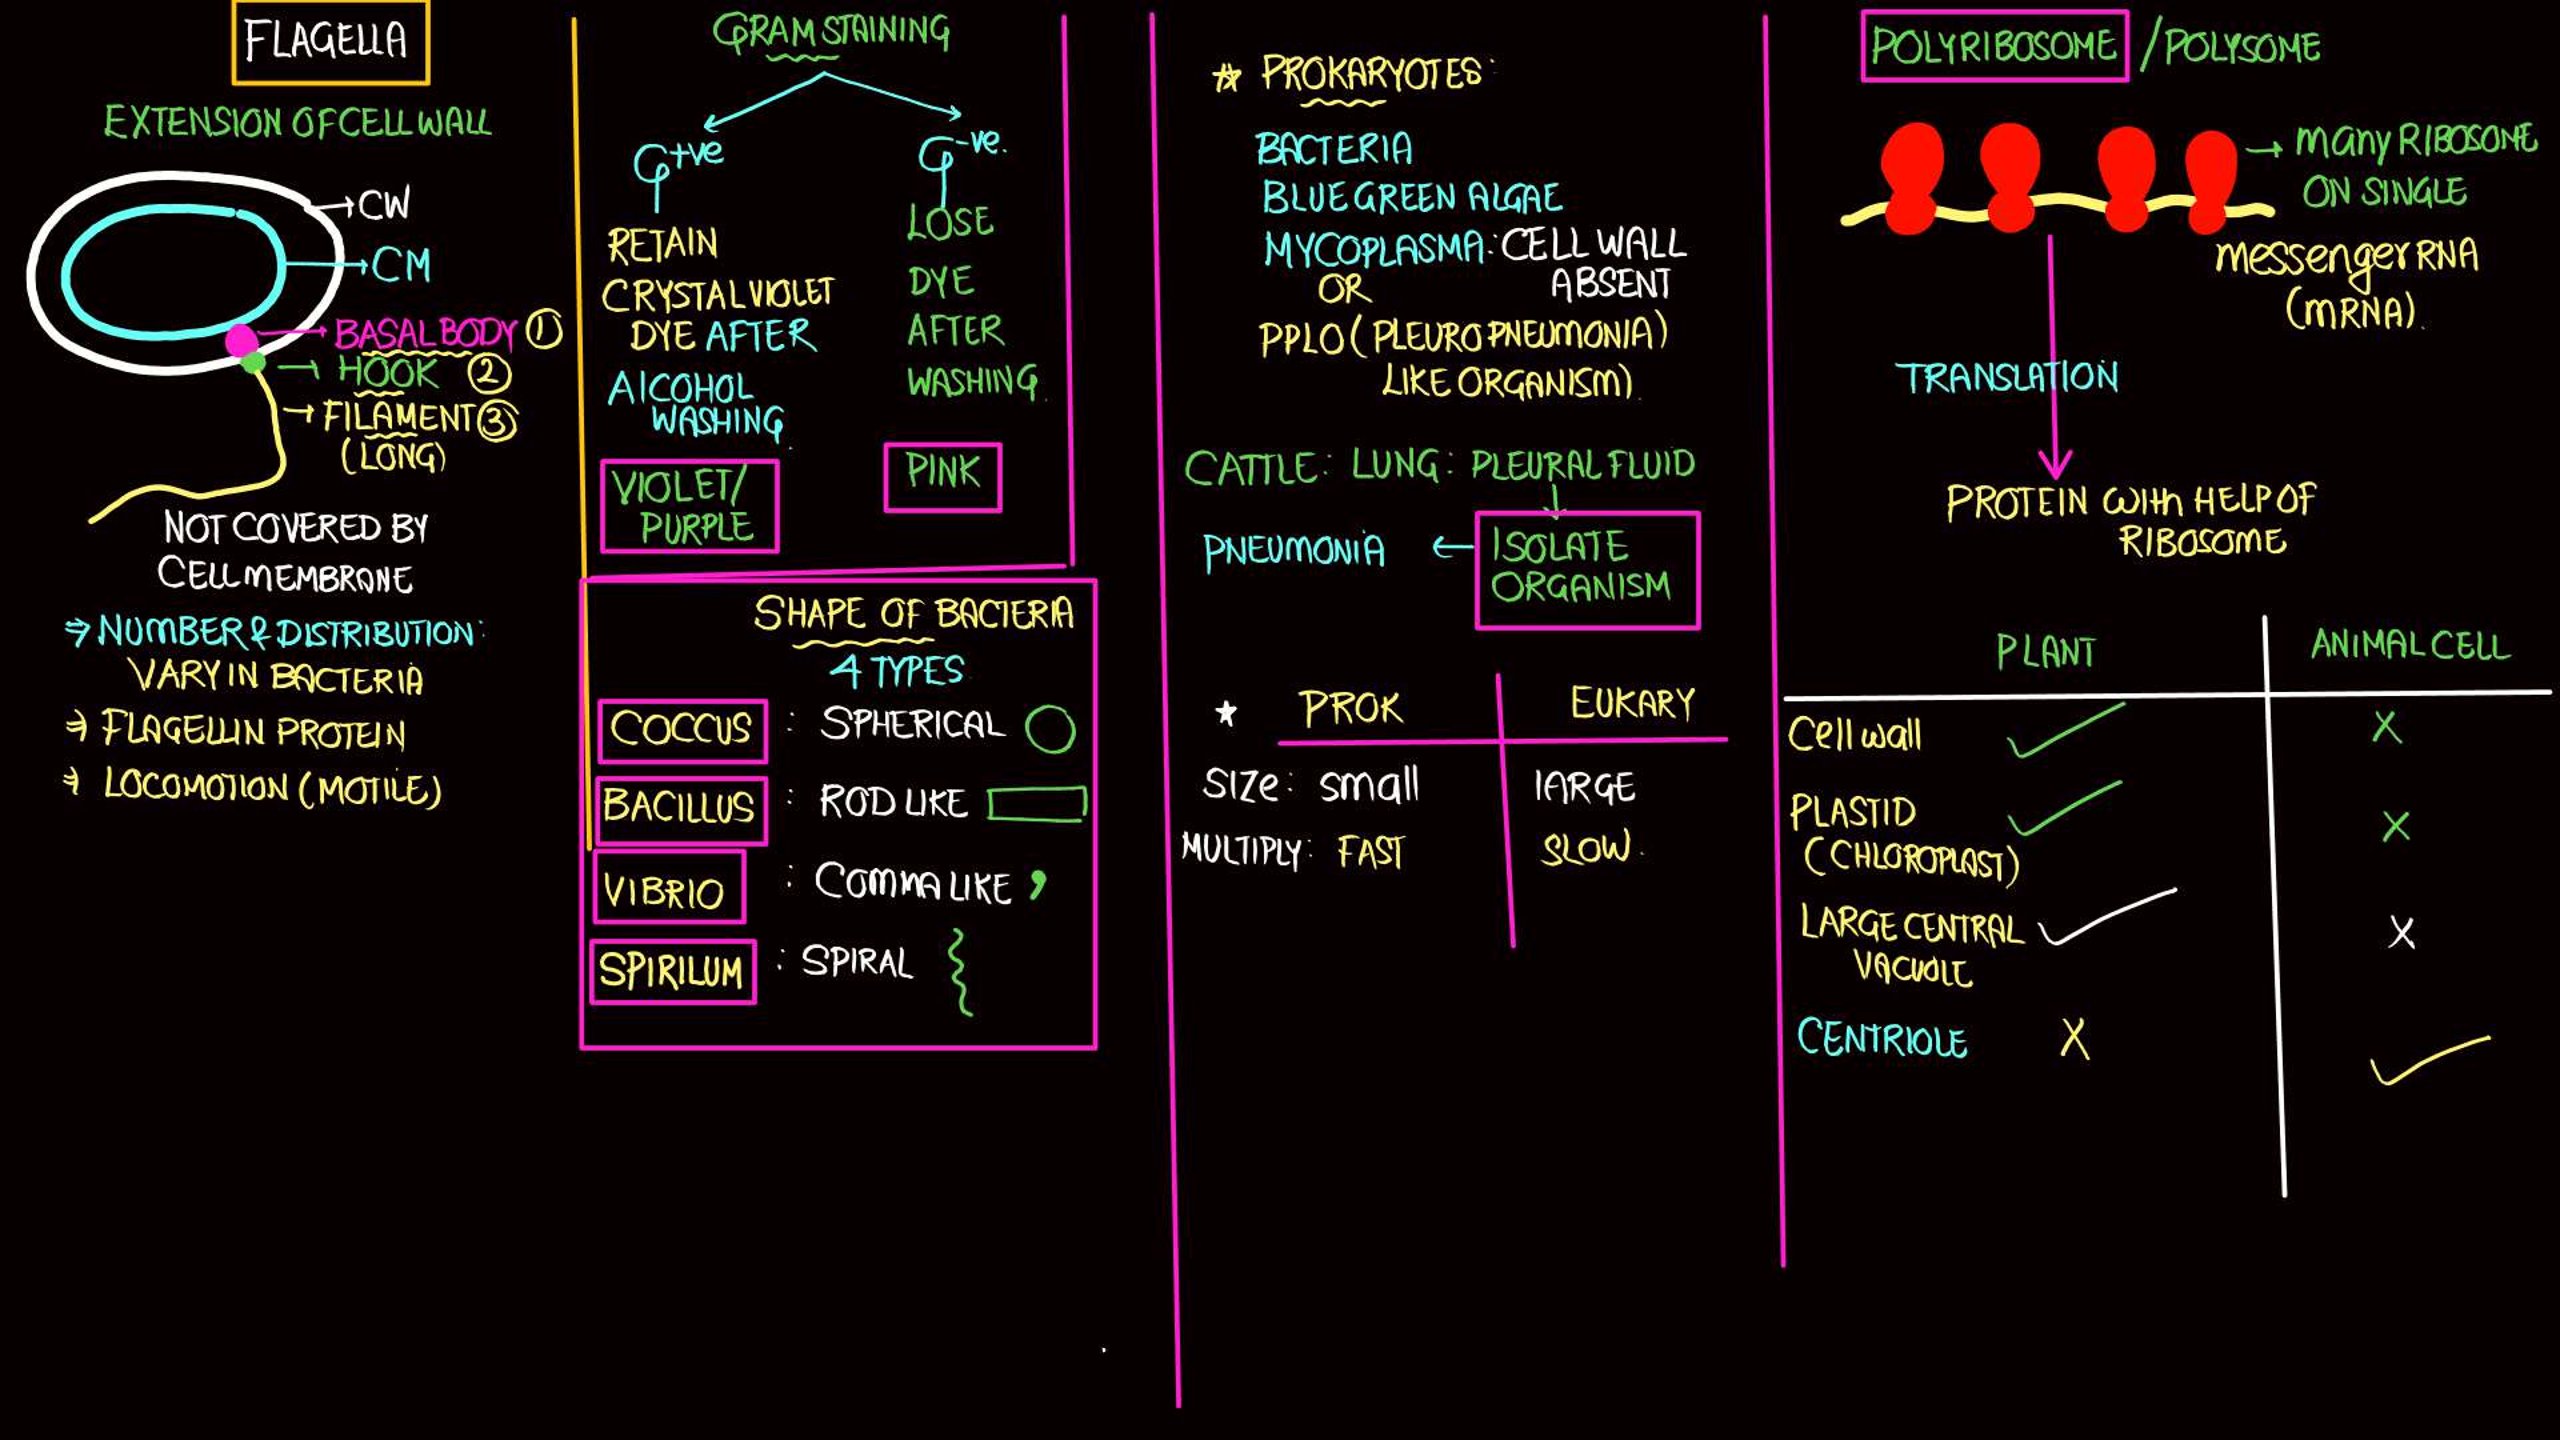 FLAGELLA
EXTENSION OF CELL WALL
CW
CM
BASAL BODY ①
HOOK ②
FILAMENT ③
(LONG)
NOT COVERED BY
CELL MEMBRANE
⇒ NUMBER & DISTRIBUTION:
VARY IN BACTERIA
⇒ FLAGELLIN PROTEIN
⇒ LOCOMOTION (MOTILE)
GRAM STAINING
G+ve
RETAIN
CRYSTAL VIOLET
DYE AFTER
ALCOHOL
WASHING
VIOLET/
PURPLE
G-ve.
LOSE
DYE
AFTER
WASHING.
PINK
SHAPE OF BACTERIA
4 TYPES
COCCUS : SPHERICAL
BACILLUS : ROD LIKE
VIBRIO : COMMA LIKE ,
SPIRILUM : SPIRAL
* PROKARYOTES:
BACTERIA
BLUE GREEN ALGAE
MYCOPLASMA: CELL WALL
OR ABSENT
PPLO (PLEURO PNEUMONIA)
LIKE ORGANISM).
CATTLE: LUNG: PLEURAL FLUID
PNEUMONIA ← ISOLATE
ORGANISM
★ PROK EUKARY
SIZE: small LARGE
MULTIPLY: FAST SLOW.
POLYRIBOSOME / POLYSOME
→ many RIBOSOME
ON SINGLE
messenger RNA
(mRNA).
TRANSLATION
PROTEIN with HELP OF
RIBOSOME
PLANT ANIMAL CELL
Cell wall ✓ X
PLASTID ✓ X
(CHLOROPLAST)
LARGE CENTRAL ✓ X
VACUOLE
CENTRIOLE X ✓